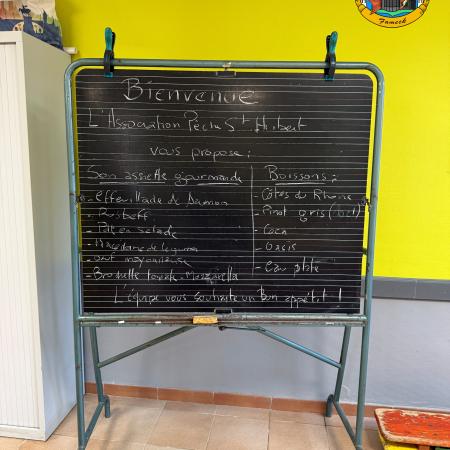 Bienvenue
L'Association Pêche St Hubert
vous propose :
Son assiette gourmande
- effeuillade de Jambon
- Rosbeff
- Pdt en salade
- Macédoine de légumes
- œuf mayonnaise
- Brochette tomate-Mozzarella
Boissons :
- Côtes du Rhône
- Pinot gris (
- Coca
- Oasis
- eau plate
L'équipe vous souhaite un Bon appétit !
Fameck